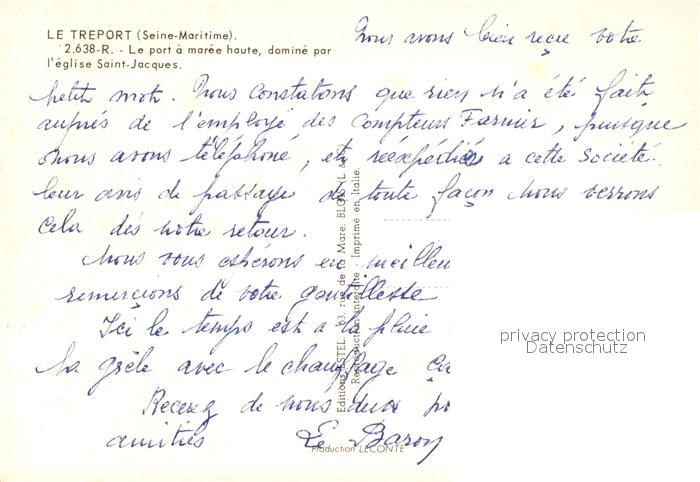 LE TREPORT (Seine-Maritime).
2.638-R. - Le port à marée haute, dominé par
l'église Saint-Jacques.
Nous avons bien reçu votre
petit mot. Nous constatons que rien n'a été fait
auprés de l'employé des Compteurs Farnier, puisque
nous avons téléphoné, et réexpédiés a cette société
leur avis de passage de toute façon nous verrons
cela dés notre retour.
Nous vous espérons en meilleu
remercions de votre gentillesse
Ici le temps est a la pluie
la grêle avec le chauffage ça
Recevez de nous deux
amitiés Le Baron
Editions ESTEL, 63, rue de la Mare, BLOIS/L. &
Reproduction interdite Imprimé en Italie.
Production LECONTE
privacy protection
Datenschutz